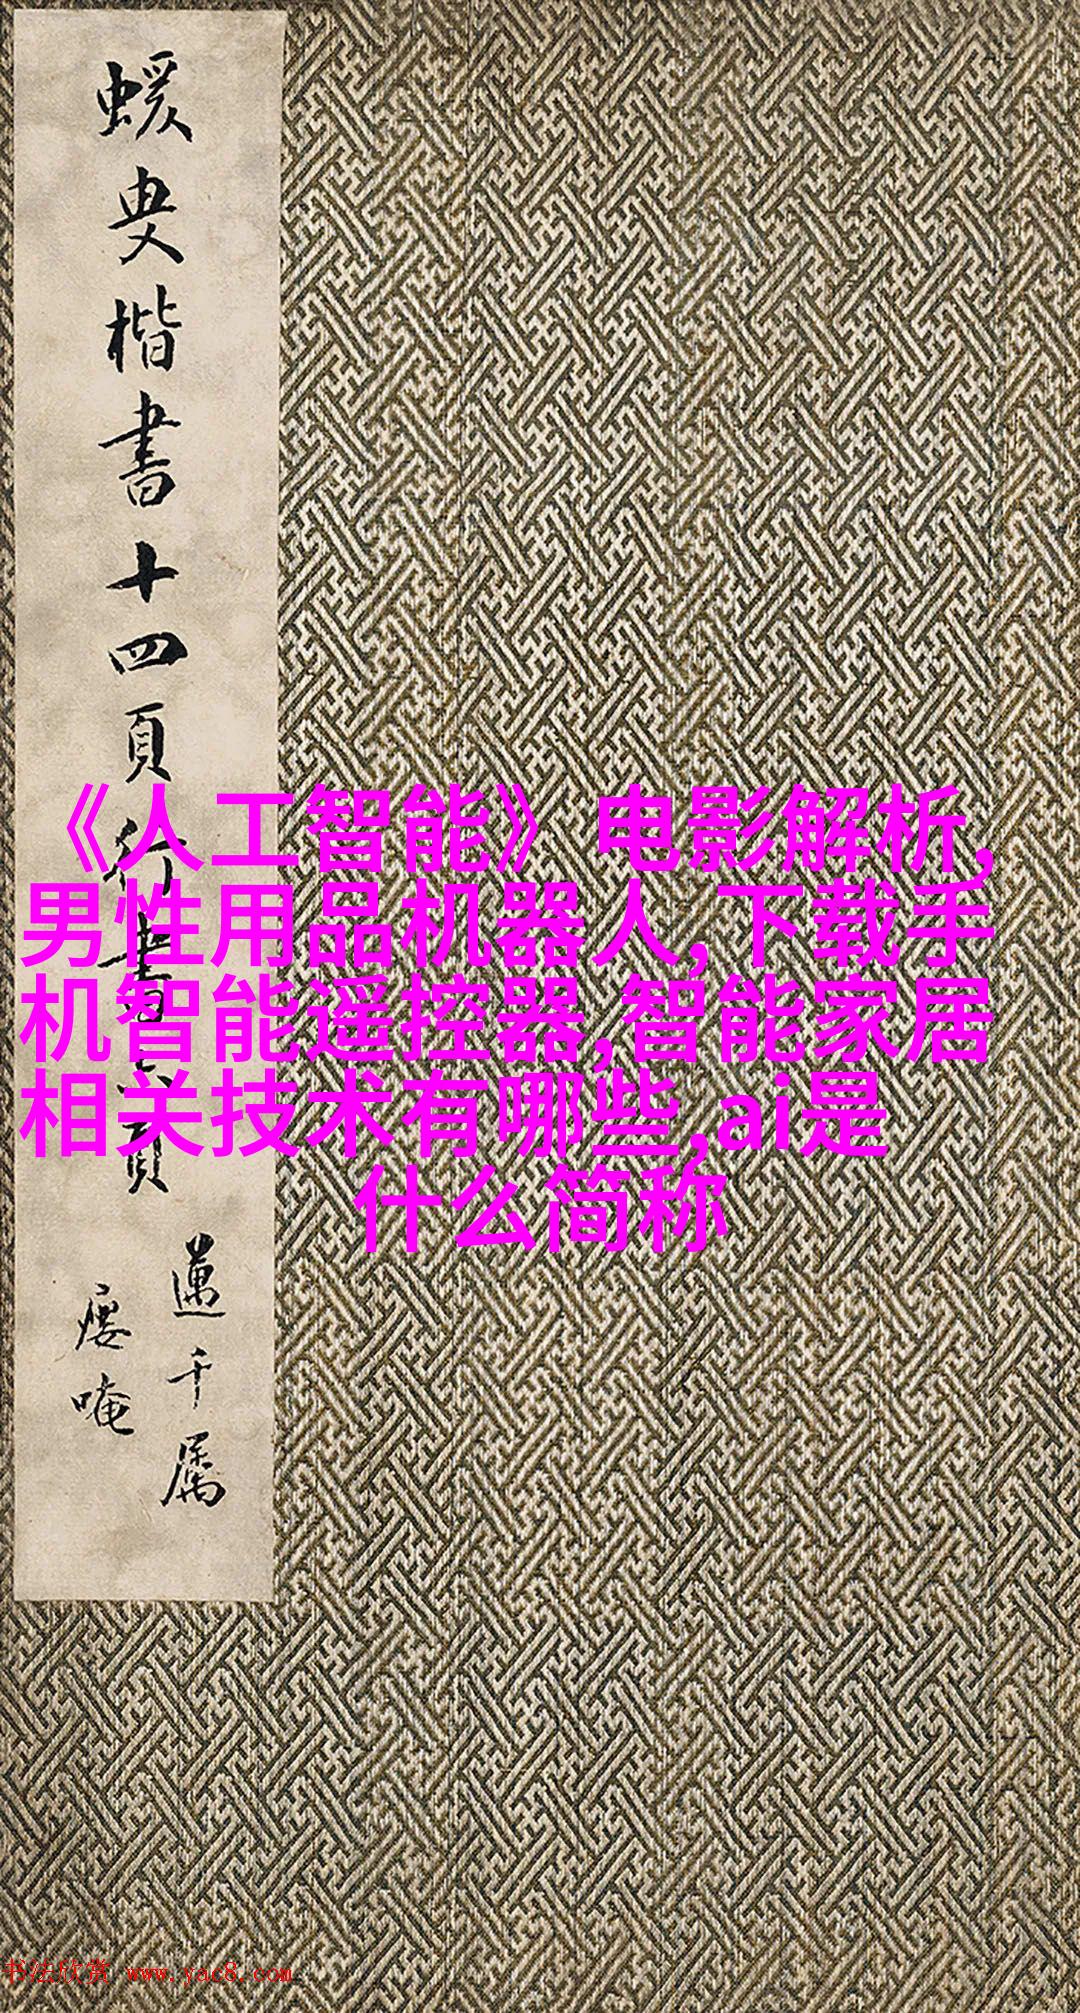 蝯叟楷書十四頁行書六頁
蘧千屬
㾞唵
《人工智能》 电影解析,
男性用品机器人,下载手
机智能遥控器,智能家居
相关技术有哪些,ai是
什么简称
书法欣赏 www.yac8.com